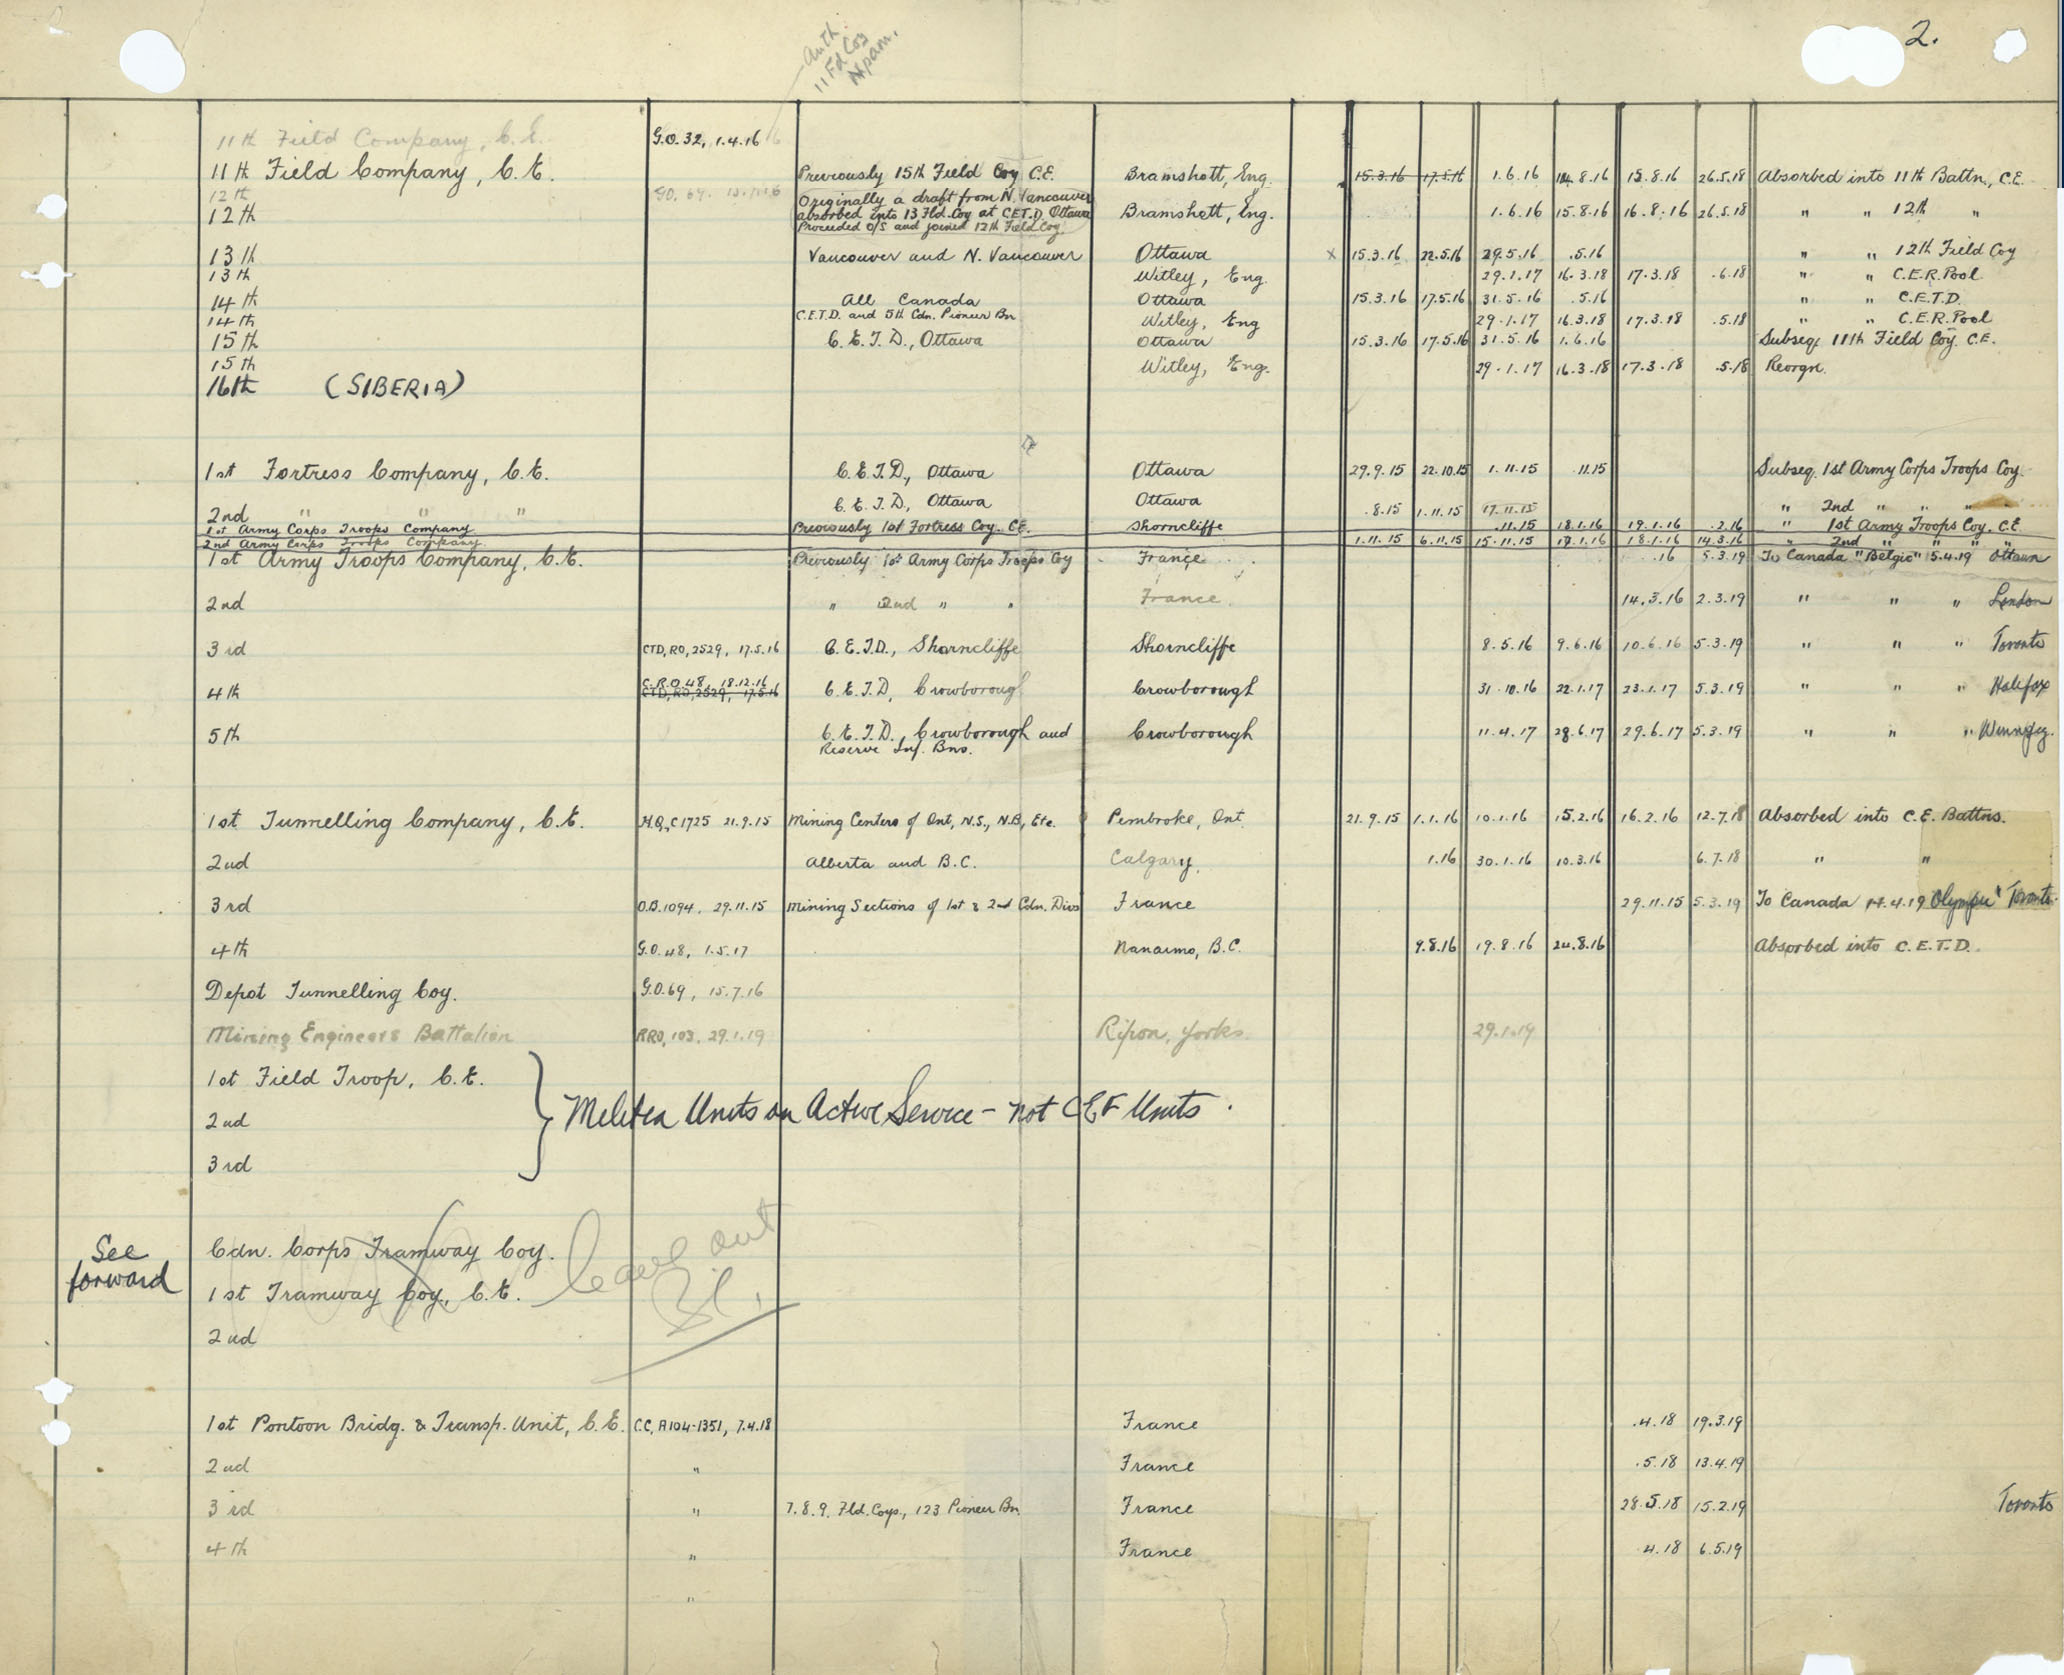 2.
Auth.
11 Fd Coy
11th Field Company, C.E. G.O. 32, 1.4.16
11th Field Company, C.E. Previously 15th Field Coy C.E. Bramshott, Eng. 15.3.16 17.5.16 1.6.16 14.8.16 15.8.16 26.5.18 Absorbed into 11th Battn., C.E.
12th G.O. 69.
12th Originally a draft from N. Vancouver absorbed into 13 Fld. Coy at C.E.T.D. Ottawa Proceeded O/S and joined 12th Field Coy. Bramshott, Eng. 1.6.16 15.8.16 16.8.16 26.5.18 " " 12th "
13th Vancouver and N. Vancouver Ottawa x 15.3.16 22.5.16 29.5.16 .5.16 " " 12th Field Coy
13th Witley, Eng. 29.1.17 16.3.18 17.3.18 .6.18 " " C.E.R. Pool
14th All Canada Ottawa 15.3.16 17.5.16 31.5.16 .5.16 " " C.E.T.D.
14th C.E.T.D. and 5th Cdn. Pioneer Bn Witley, Eng 29.1.17 16.3.18 17.3.18 .5.18 " " C.E.R. Pool
15th C.E.T.D., Ottawa Ottawa 15.3.16 17.5.16 31.5.16 1.6.16 Subseq. 11th Field Coy. C.E.
15th Witley, Eng. 29.1.17 16.3.18 17.3.18 .5.18 Reorgn.
16th (SIBERIA)
1st Fortress Company, C.E. C.E.T.D., Ottawa Ottawa 29.9.15 22.10.15 1.11.15 .11.15 Subseq. 1st Army Corps Troops Coy.
2nd " " " C.E.T.D., Ottawa Ottawa .8.15 1.11.15 17.11.15 " 2nd " " "
1st Army Corps Troops Company Previously 1st Fortress Coy. C.E. Shorncliffe .11.15 18.1.16 19.1.16 .2.16 " 1st Army Troops Coy. C.E
2nd Army Corps Troops Company. 1.11.15 6.11.15 15.11.15 17.1.16 18.1.16 14.3.16 " 2nd " " "
1st Army Troops Company, C.E. Previously 1st Army Corps Troops Coy France .16 5.3.19 To Canada "Belgic" 5.4.19 Ottawa
2nd " 2nd " " France 14.3.16 2.3.19 " " " London
3rd CTD, RO, 2529, 17.5.16 C.E.T.D., Shorncliffe Shorncliffe 8.5.16 9.6.16 10.6.16 5.3.19 " " " Toronto
4th C.R.O 48, 18.12.16 CTD, RO, 2529, 17.5.16 C.E.T.D, Crowborough Crowborough 31.10.16 22.1.17 23.1.17 5.3.19 " " " Halifax
5th C.E.T.D. Crowborough and Reserve Inf. Bns. Crowborough 11.4.17 28.6.17 29.6.17 5.3.19 " " " Winnipeg.
1st Tunnelling Company, C.E. H.Q., C1725 21.9.15 Mining Centers of Ont, N.S., N.B, Etc. Pembroke, Ont. 21.9.15 1.1.16 10.1.16 15.2.16 16.2.16 12.7.18 Absorbed into C.E. Battns.
2nd Alberta and B.C. Calgary. 1.16 30.1.16 10.3.16 6.7.18 " "
3rd O.B. 1094, 29.11.15 Mining Sections of 1st & 2nd Cdn. Divs France 29.11.15 5.3.19 To Canada 14.4.19 Olympic" Toronto.
4th G.O. 48, 1.5.17 Nanaimo, B.C. 9.8.16 19.8.16 24.8.16 Absorbed into C.E.T.D.
Depot Tunnelling Coy. G.O. 69, 15.7.16
Mining Engineers Battalion RRO, 103, 29.1.19 Ripon, Yorks. 29.1.19
1st Field Troop, C.E.
2nd Militia Units on Active Service - not CEF Units.
3rd
See forward
Cdn. Corps Tramway Coy. leave out
1st Tramway Coy, C.E.
2nd
1st Pontoon Bridg. & Transp. Unit, C.E. C.C, A104-1351, 7.4.18 France .4.18 19.3.19
2nd " France .5.18 13.4.19
3rd " 7. 8. 9. Fld. Coys., 123 Pioneer Bn. France 28.5.18 15.2.19 Toronto
4th " France .4.18 6.5.19
"